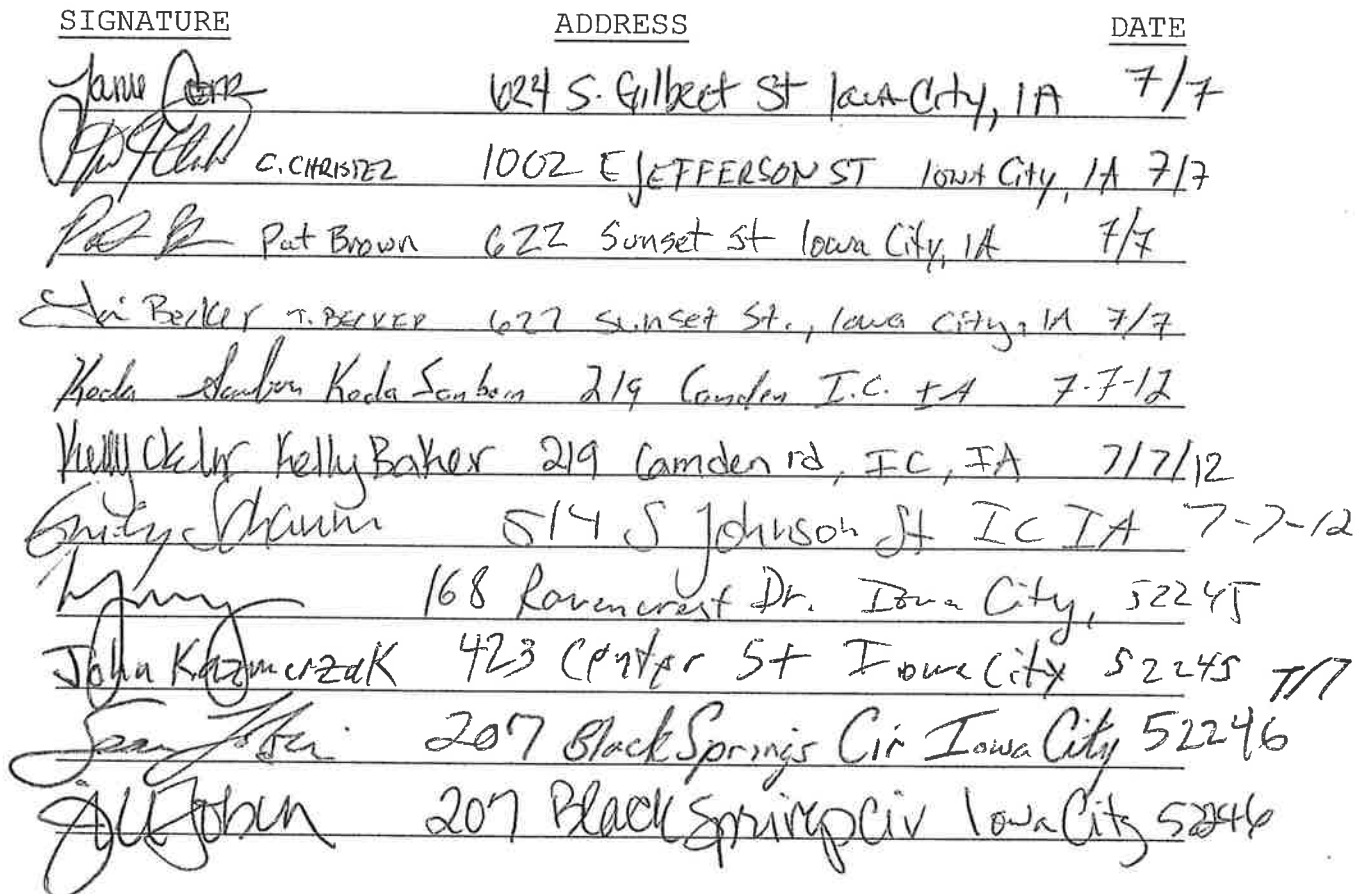 SIGNATURE ADDRESS DATE
624 S. Gilbert St Iowa City, IA 7/7
C. CHRISTEZ 1002 E JEFFERSON ST Iowa City, IA 7/7
Pat Brown 622 Sunset St Iowa City, IA 7/7
Becker T. BECKER 622 Sunset St., Iowa City, IA 7/7
Koda Sanborn Koda Sanborn 219 Camden I.C. IA 7-7-12
Kelly Kelly Baker 219 Camden rd, IC, IA 7/7/12
Emily Schaum 514 S Johnson St IC IA 7-7-12
168 Ravencrest Dr. Iowa City, 52245
John Kazmierzak 423 Center St Iowa City 52245 7/7
207 Black Springs Cir Iowa City 52246
Jill Tobin 207 Black Springs Cir Iowa City 52246